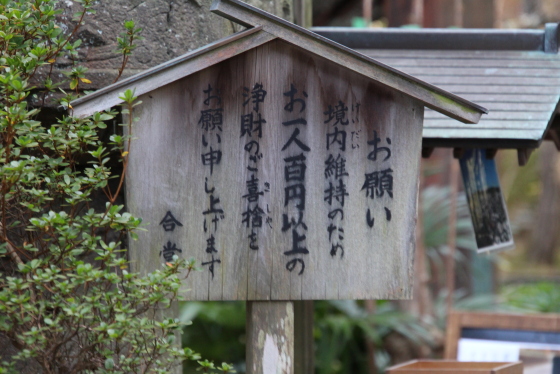 お願い
境内維持のため
お一人百円以上の
浄財のご喜捨を
お願い申し上げます
合掌